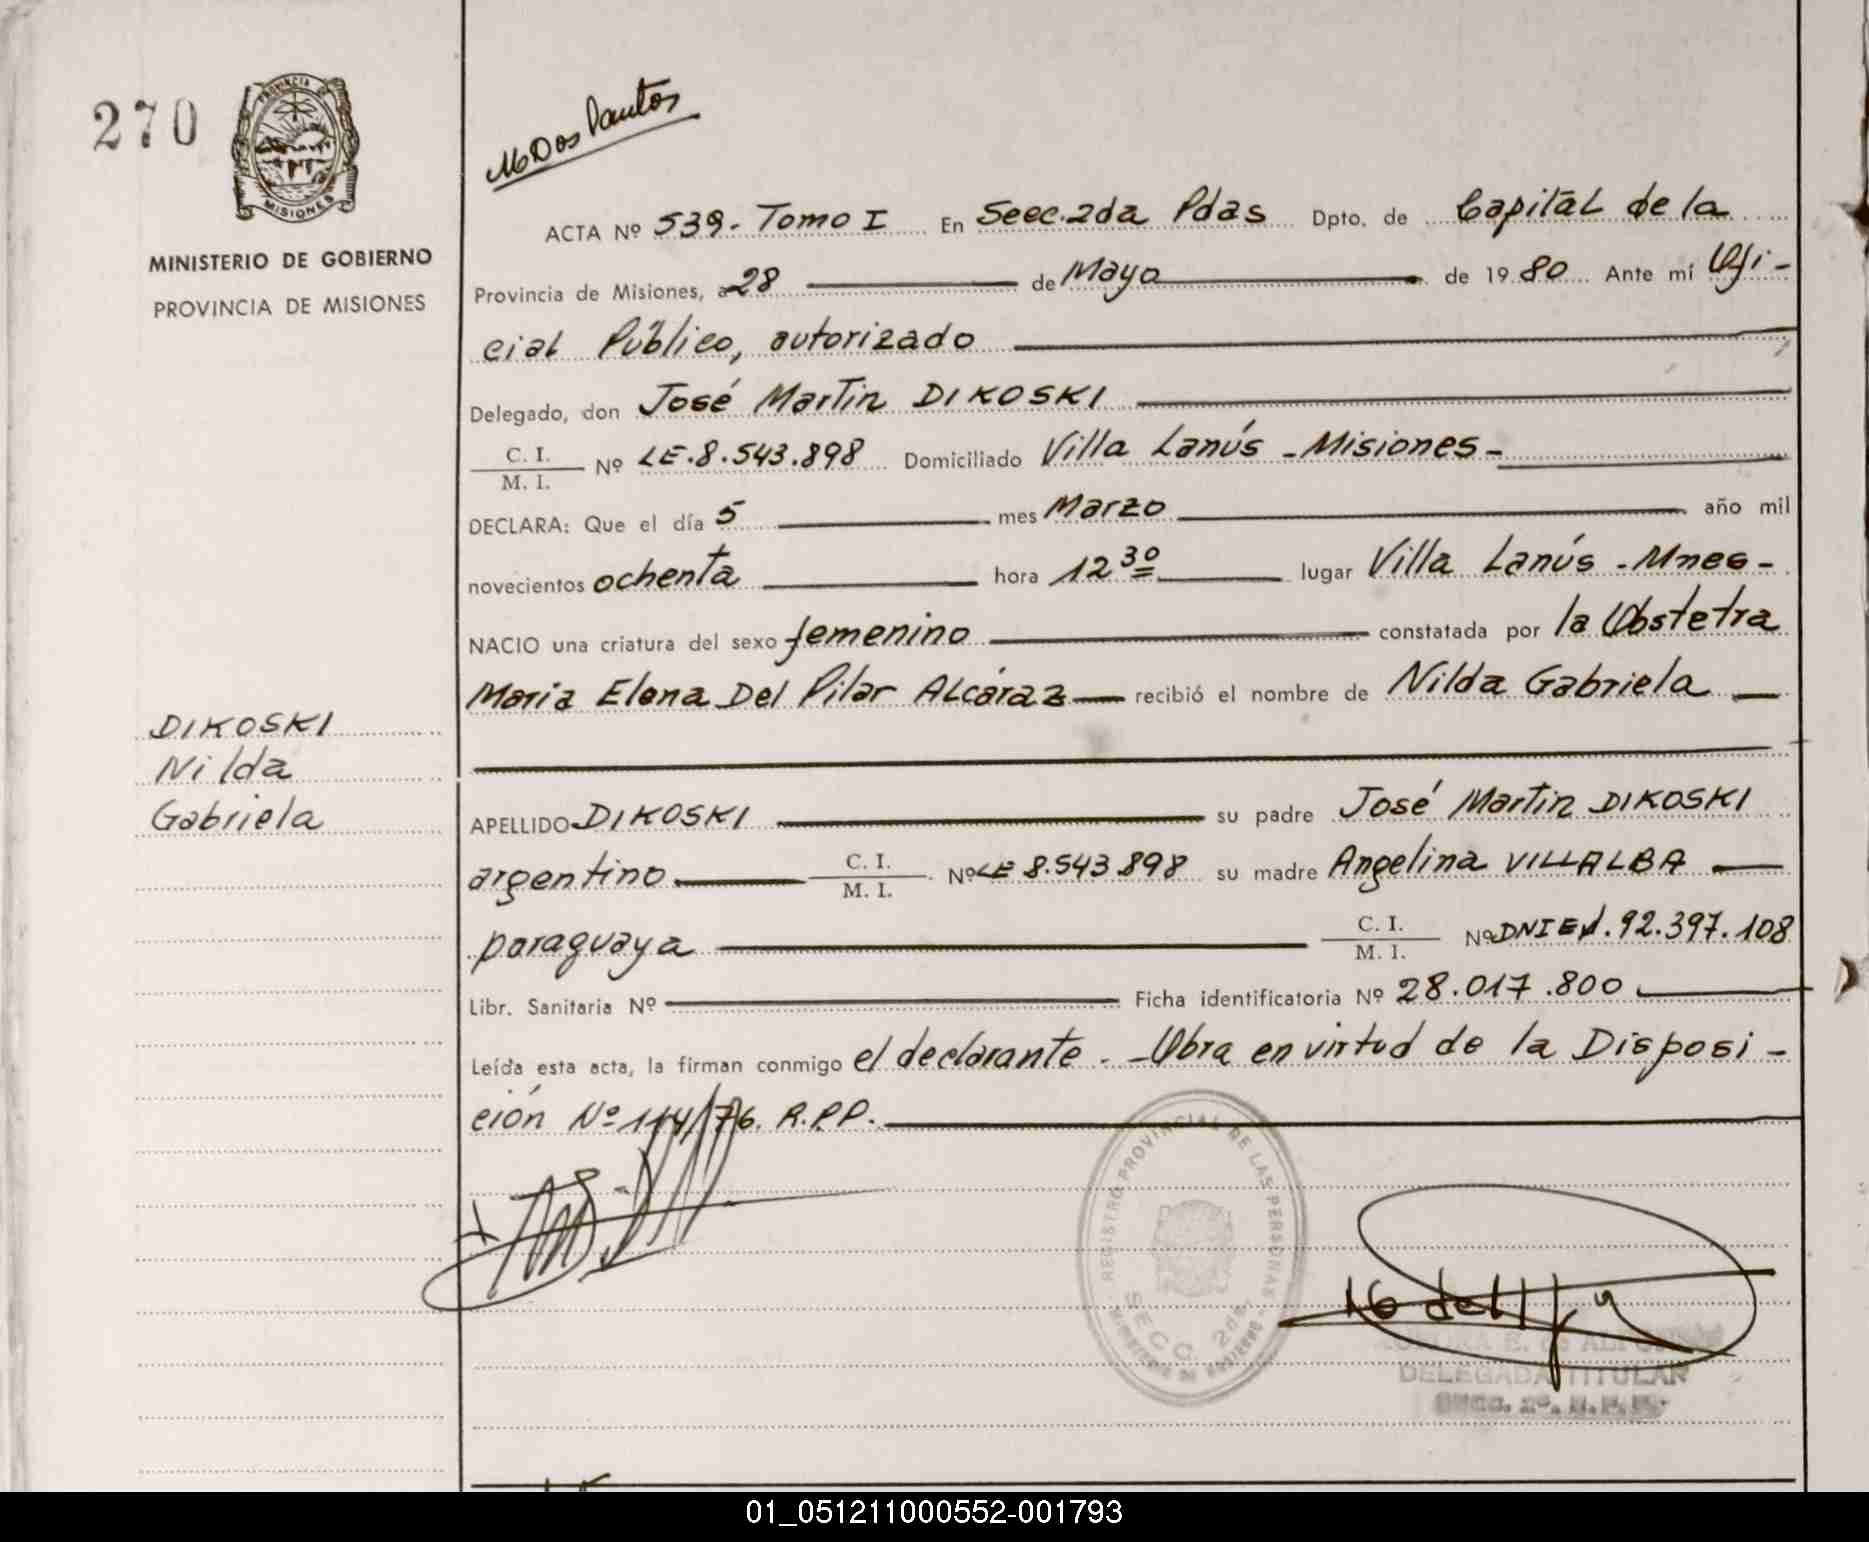 270
PROVINCIA DE
MISIONES
MINISTERIO DE GOBIERNO
PROVINCIA DE MISIONES
Dos Santos
ACTA Nº 539.- Tomo I En Secc. 2da Pdas Dpto. de Capital de la
Provincia de Misiones, a 28 de Mayo de 1980 Ante mí Ofi-
cial Público, autorizado
Delegado, don José Martin DIKOSKI
C. I.
M. I. Nº LE. 8.543.898 Domiciliado Villa Lanús - Misiones -
DECLARA: Que el día 5 mes Marzo año mil
novecientos ochenta hora 12 30 lugar Villa Lanús - Mnes -
NACIO una criatura del sexo femenino constatada por la Obstetra
María Elena Del Pilar ALcáraz recibió el nombre de Nilda Gabriela
DIKOSKI
Nilda
Gabriela
APELLIDO DIKOSKI su padre José Martin DIKOSKI
argentino C. I.
M. I. Nº LE 8.543.898 su madre Angelina VILLALBA
paraguaya C. I.
M. I. Nº DNI Ed. 92.397.108
Libr. Sanitaria Nº Ficha identificatoria Nº 28.017.800
Leída esta acta, la firman conmigo el declarante. - Obra en virtud de la Disposi-
ción Nº 114/76. R.P.P.
REGISTRO PROVINCIAL DE LAS PERSONAS
SECC. 2da.
MINISTERIO DE GOBIERNO
DELEGADA TITULAR